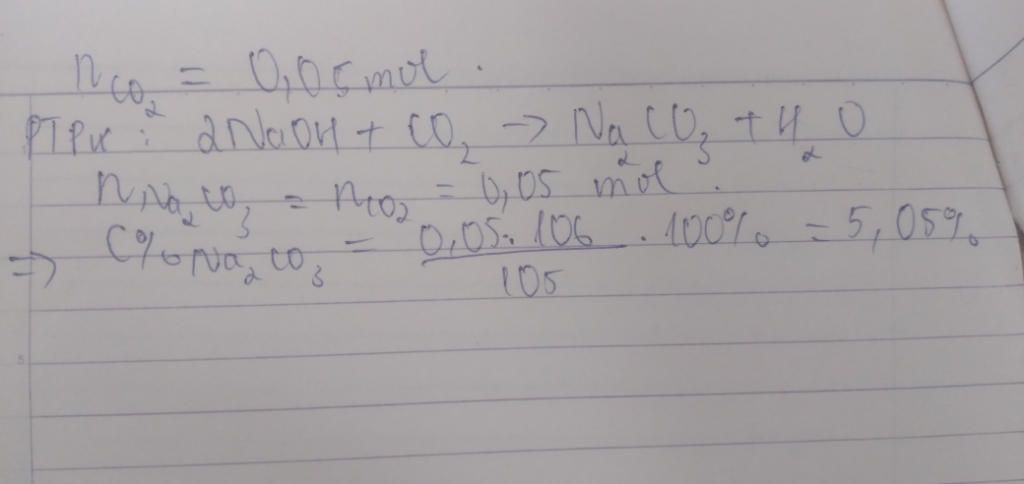 nCO₂ = 0,05 mol.
PTPƯ: 2NaOH + CO₂ → Na₂CO₃ + H₂O
nNa₂CO₃ = nCO₂ = 0,05 mol.
=> C%Na₂CO₃ = (0,05.106)/105 . 100% = 5,05%